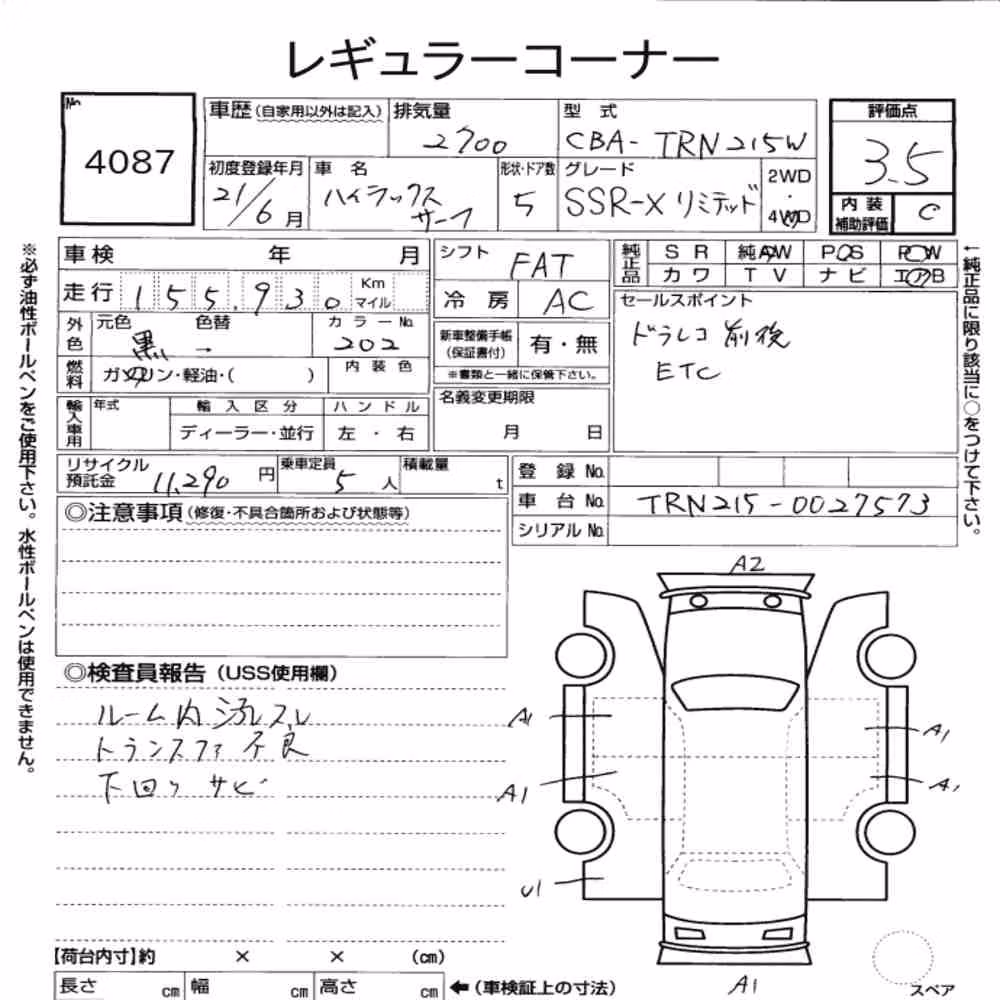 レギュラーコーナー
No.
4087
車歴(自家用以外は記入)
排気量
2700
型 式
CBA-TRN215W
評価点
3.5
初度登録年月
21/6月
車 名
ハイラックス
サーフ
形状・ドア数
5
グレード
SSR-X リミテッド
2WD
・
4WD
内 装
補助評価
C
車検 年 月
走行 155,930 Km
マイル
シフト
FAT
冷 房
AC
純正品
SR 純AW PS PW
カワ TV ナビ エアB
外色
元色 色替
黒 →
カラーNo.
202
燃料
ガソリン・軽油・( )
内 装 色
新車整備手帳
(保証書付)
有・無
※書類と一緒に保管下さい。
セールスポイント
ドラレコ 前後
ETC
輸入車用
年式
輸 入 区 分
ディーラー・並行
ハ ン ド ル
左 ・ 右
名義変更期限
月 日
リサイクル
預託金
11,290 円
乗車定員
5 人
積載量
t
登 録 No.
車 台 No. TRN215-0027573
シリアル No.
◎注意事項(修復・不具合箇所および状態等)
◎検査員報告(USS使用欄)
ルーム内 汚レスレ
トランスファ 不良
下回り サビ
A2
A1
A1
A1
A1
U1
A1
スペア
【荷台内寸】約 × × (cm)
長さ cm 幅 cm 高さ cm ←(車検証上の寸法)
※必ず油性ボールペンをご使用下さい。水性ボールペンは使用できません。
←純正品に限り該当に○をつけて下さい。